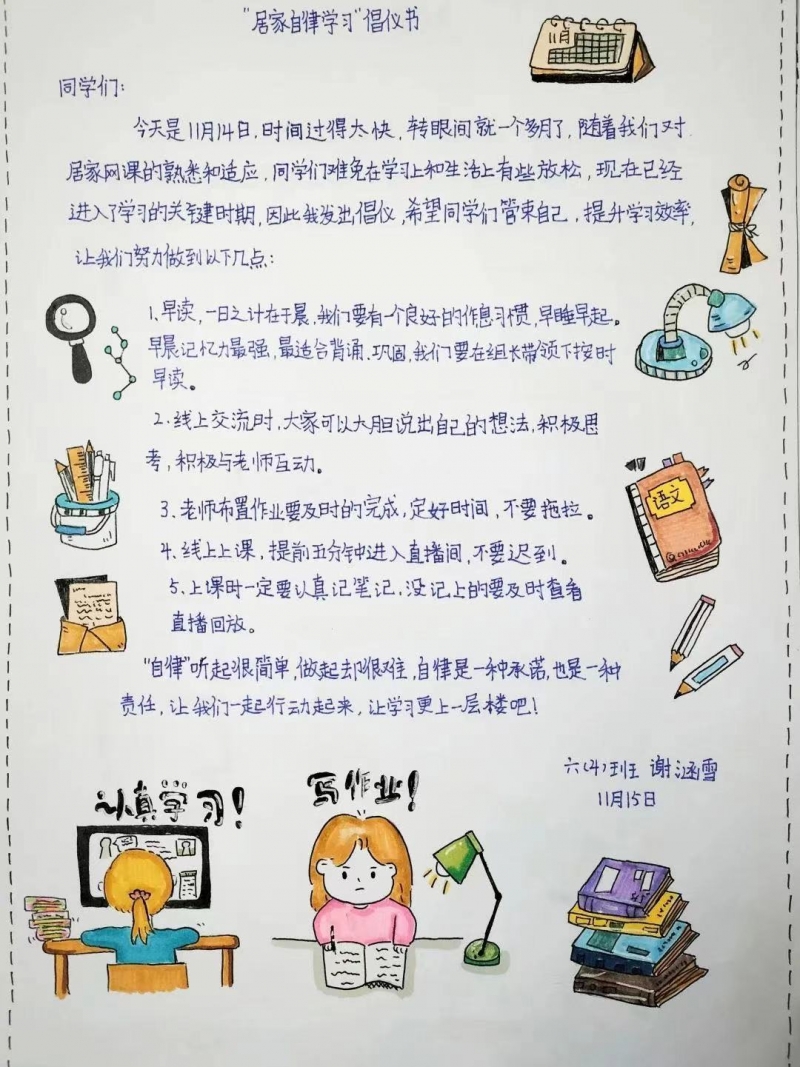 "居家自律学习"倡仪书
11月
同学们:
今天是11月14日,时间过得太快,转眼间就一个多月了,随着我们对
居家网课的熟悉和适应,同学们难免在学习上和生活上有些放松,现在已经
进入了学习的关键时期,因此我发出倡仪,希望同学们管束自己,提升学习效率,
让我们努力做到以下几点:
1.早读,一日之计在于晨,我们要有一个良好的作息习惯,早睡早起。
早晨记忆力最强,最适合背诵、巩固,我们要在组长带领下按时
早读。
2.线上交流时,大家可以大胆说出自己的想法,积极思
考,积极与老师互动。
语文
3.老师布置作业要及时的完成,定好时间,不要拖拉。
4.线上上课,提前五分钟进入直播间,不要迟到。
5.上课时一定要认真记笔记,没记上的要及时查看
直播回放。
"自律"听起很简单,做起去却很难,自律是一种承诺,也是一种
责任,让我们一起行动起来,让学习更上一层楼吧!
六(4)班 谢涵雪
11月15日
认真学习!
写作业!